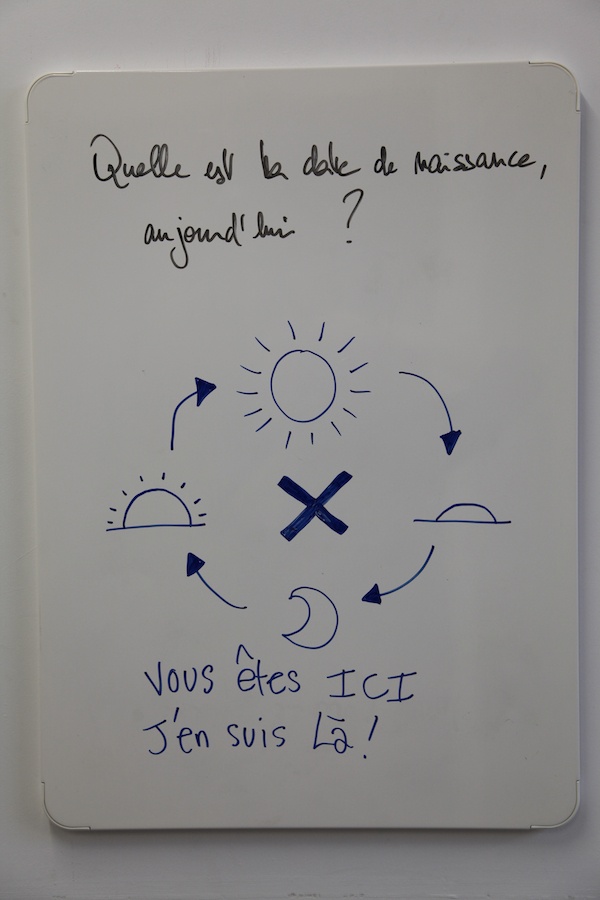 Quelle est la date de naissance,
aujourd'hui ?
vous êtes ICI
J'en suis Là !